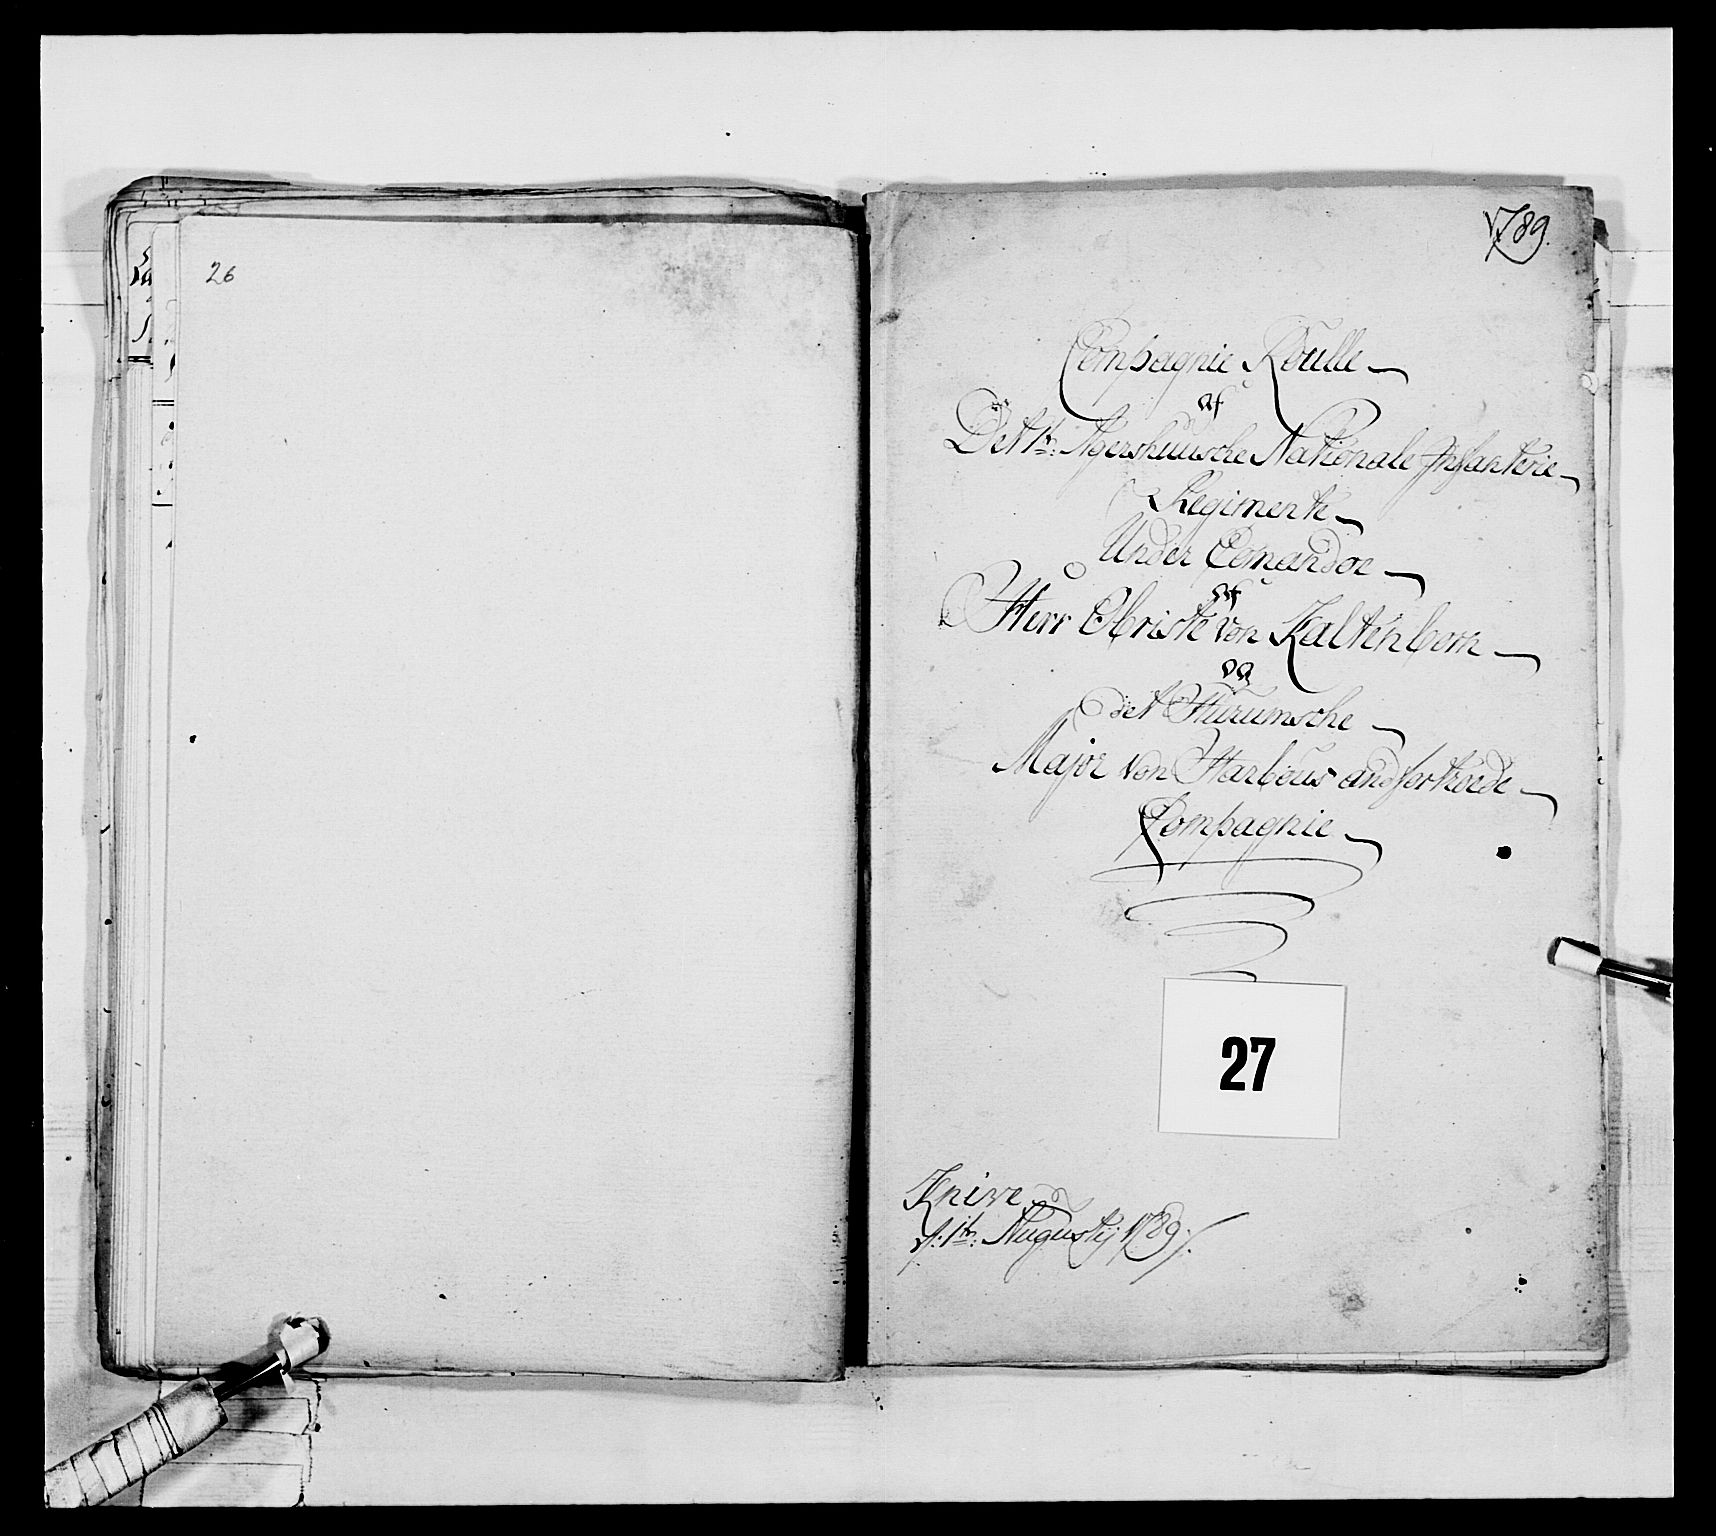 26
1789.
Compagnie Roulle
af
Det 1te: Agershuusche Nationale Infanterie
Regimente
Under Comandoe
af
Herr Obriste von Kaltenborn
og
det Hurumsche
Major von Harbous andfortroede
Compagnie
27
Knive
d: 1te: Augustij 1789.